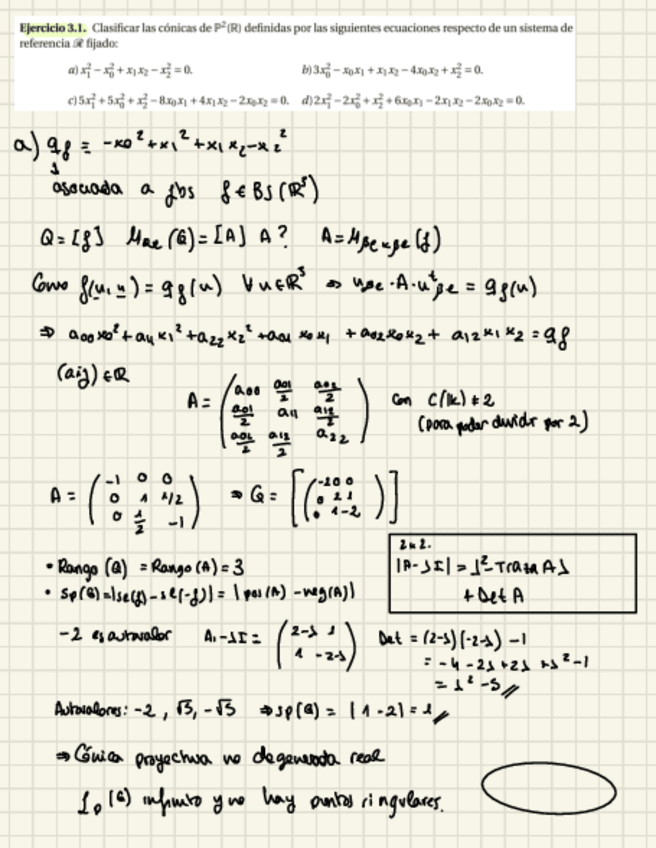 Ejercicio 3.1. Clasificar las cónicas de ℙ²(ℝ) definidas por las siguientes ecuaciones respecto de un sistema de
referencia ℛ fijado:
a) x₁² − x₀² + x₁x₂ − x₂² = 0. b) 3x₀² − x₀x₁ + x₁x₂ − 4x₀x₂ + x₂² = 0.
c) 5x₁² + 5x₀² + x₂² − 8x₀x₁ + 4x₁x₂ − 2x₀x₂ = 0. d) 2x₁² − 2x₀² + x₂² + 6x₀x₁ − 2x₁x₂ − 2x₀x₂ = 0.
a) qf = -x0² + x1² + x1 x2 - x2²
asociada a fbs f ∈ BS(ℝ³)
Q = [f] M (Q) = [A] A? A = M (f)
Como f(u, u) = qf(u) ∀u∈ℝ³ ⇒ · A · = qf(u)
⇒ a00 x0² + a11 x1² + a22 x2² + a01 x0 x1 + a02 x0 x2 + a12 x1 x2 = qf
(aij) ∈ ℝ
A = ( a00 a01/2 a02/2 ; a01/2 a11 a12/2 ; a02/2 a12/2 a22 ) con C(lk) ≠ 2
(para poder dividir por 2)
A = ( -1 0 0 ; 0 1 1/2 ; 0 1/2 -1 ) ⇒ Q = [ ( -2 0 0 ; 0 2 1 ; 0 1 -2 ) ]
2x2.
|A - λI| = λ² - Traza Aλ
+ Det A
• Rango (Q) = Rango (A) = 3
• Sp(Q) = |se(f) - se(-f)| = |pos(A) - neg(A)|
-2 es autovalor A₁ - λI = ( 2-λ 1 ; 1 -2-λ ) Det = (2-λ)(-2-λ) - 1
= -4 - 2λ + 2λ + λ² - 1
= λ² - 5
Autovalores: -2, √5, -√5 ⇒ Sp(Q) = |1 - 2| = 1
⇒ Cónica proyectiva no degenerada real
(Q) infinito y no hay puntos singulares.